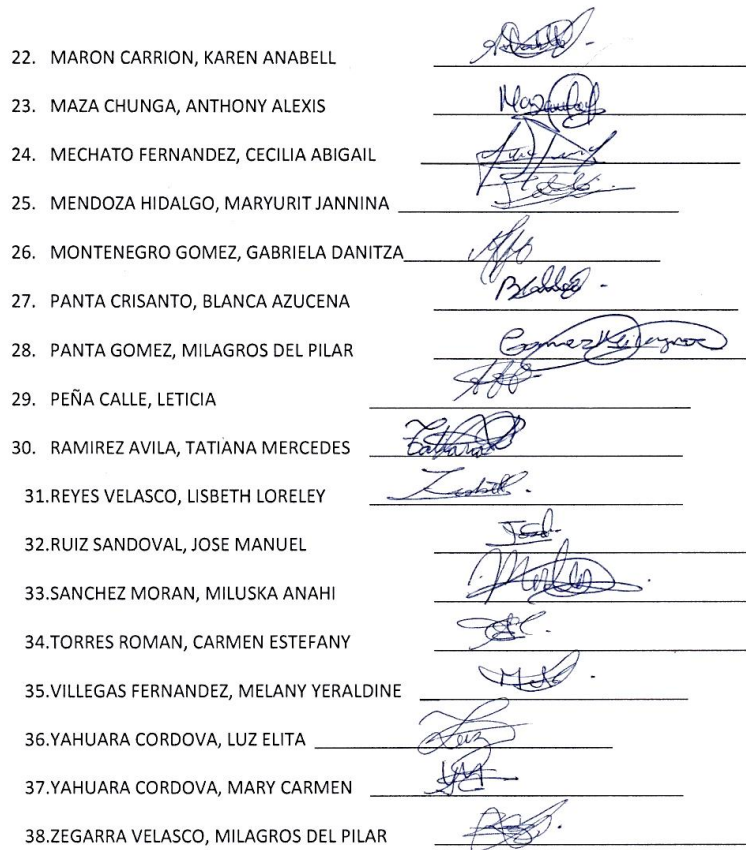 22. MARON CARRION, KAREN ANABELL
23. MAZA CHUNGA, ANTHONY ALEXIS
24. MECHATO FERNANDEZ, CECILIA ABIGAIL
25. MENDOZA HIDALGO, MARYURIT JANNINA
26. MONTENEGRO GOMEZ, GABRIELA DANITZA
27. PANTA CRISANTO, BLANCA AZUCENA
28. PANTA GOMEZ, MILAGROS DEL PILAR Gomez Milagros
29. PEÑA CALLE, LETICIA
30. RAMIREZ AVILA, TATIANA MERCEDES Tatiana
31.REYES VELASCO, LISBETH LORELEY
32.RUIZ SANDOVAL, JOSE MANUEL
33.SANCHEZ MORAN, MILUSKA ANAHI
34.TORRES ROMAN, CARMEN ESTEFANY
35.VILLEGAS FERNANDEZ, MELANY YERALDINE
36.YAHUARA CORDOVA, LUZ ELITA Luz
37.YAHUARA CORDOVA, MARY CARMEN
38.ZEGARRA VELASCO, MILAGROS DEL PILAR